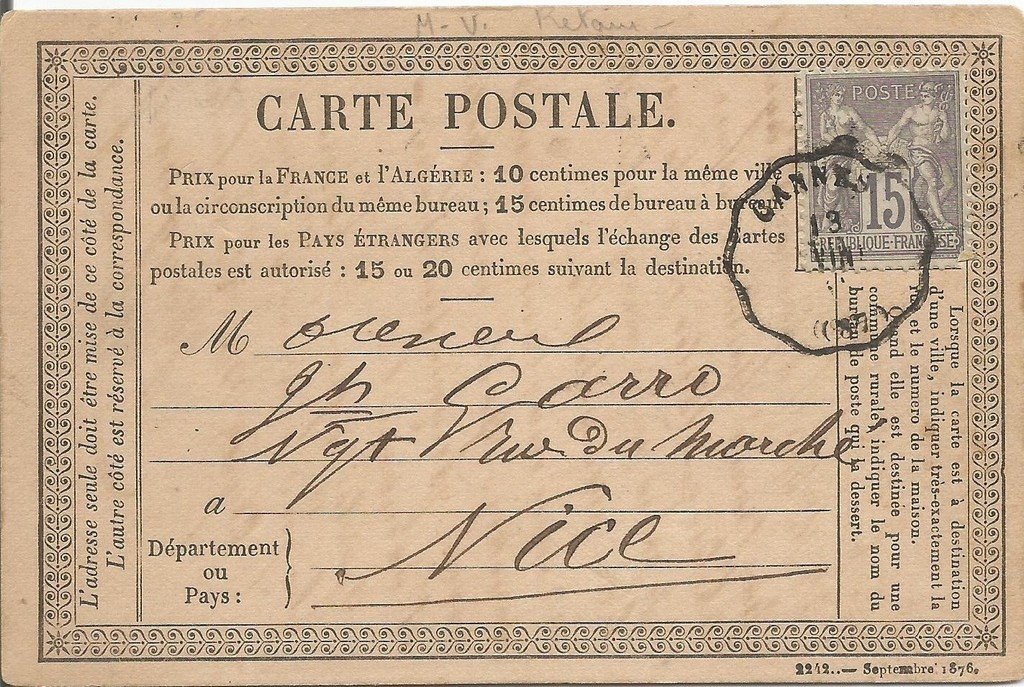 M-V.
CARTE POSTALE.
PRIX pour la FRANCE et l'ALGÉRIE : 10 centimes pour la même ville
ou la circonscription du même bureau ; 15 centimes de bureau à bureau
PRIX pour les PAYS ÉTRANGERS avec lesquels l'échange des Cartes
postales est autorisé : 15 ou 20 centimes suivant la destination.
POSTE
15
REPUBLIQUE-FRANÇAISE
CANNES
13
M
Jh Garro
Ngt rue du Marché
a Nice
Département
ou
Pays :
L'adresse seule doit être mise de ce côté de la carte.
L'autre côté est réservé à la correspondance.
Lorsque la carte est à destination
d'une ville, indiquer très-exactement la
et le numero de la maison.
elle est destinée pour une
commune rurale, indiquer le nom du
de poste qui la dessert.
2242..— Septembre 1876.